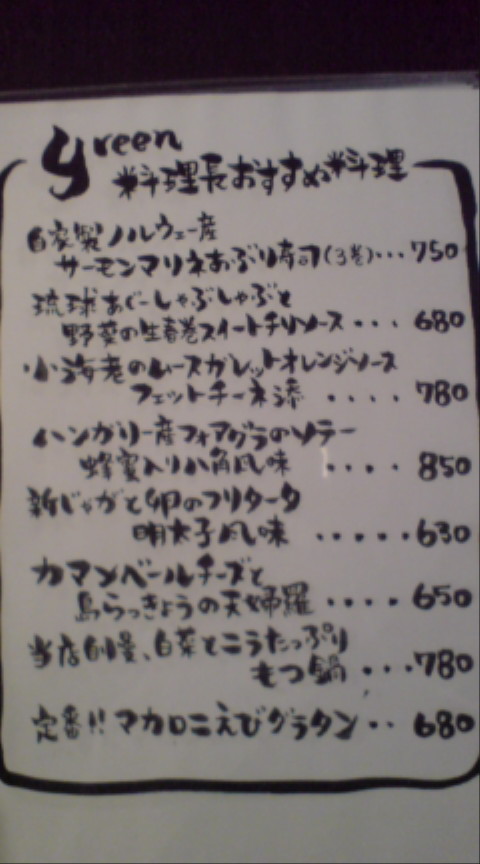 green
料理長おすすめ料理
自家製ノルウェー産
サーモンマリネあぶり寿司(3巻)・・・750
琉球あぐーしゃぶしゃぶと
野菜の生春巻スイートチリソース・・・680
小海老のムースガレットオレンジソース
フェットチーネ添・・・・780
ハンガリー産フォアグラのソテー
蜂蜜入り八角風味・・・・850
新じゃがと卵のフリタータ
明太子風味・・・・・630
カマンベールチーズと
島らっきょうの天婦羅・・・・650
当店自慢、白菜とニラたっぷり
もつ鍋・・・780
定番!!マカロニえびグラタン・・680